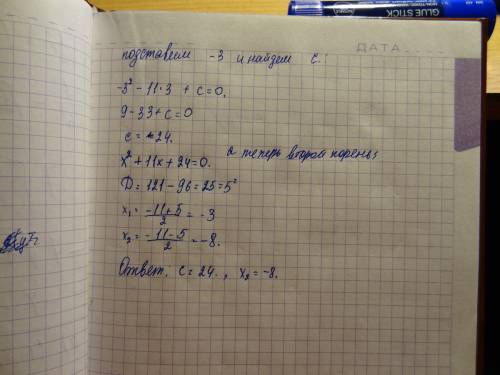 GLUE STICK
ДАТА
подставим -3 и найдем c.
-3² - 11·3 + c = 0.
9 - 33 + c = 0
c = 24.
x² + 11x + 24 = 0. а теперь второй корень:
D = 121 - 96 = 25 = 5²
x₁ = -11+5/2 = -3
x₂ = -11-5/2 = -8.
Ответ: c = 24., x₂ = -8.